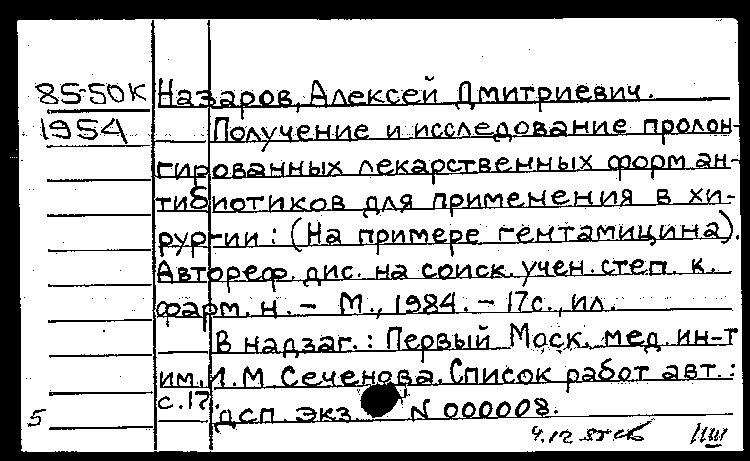 85-50К Назаров, Алексей Дмитриевич.
1954 Получение и исследование пролон-
гированных лекарственных форм ан-
тибиотиков для применения в хи-
рургии: (На примере гентамицина).
Автореф. дис. на соиск. учен. степ. к.
фарм. н. - М., 1984. - 17с., ил.
В надзаг.: Первый Моск. мед. ин-т
им. И.М Сеченова. Список работ авт.:
с.17. дсп. экз. N 000008.
5